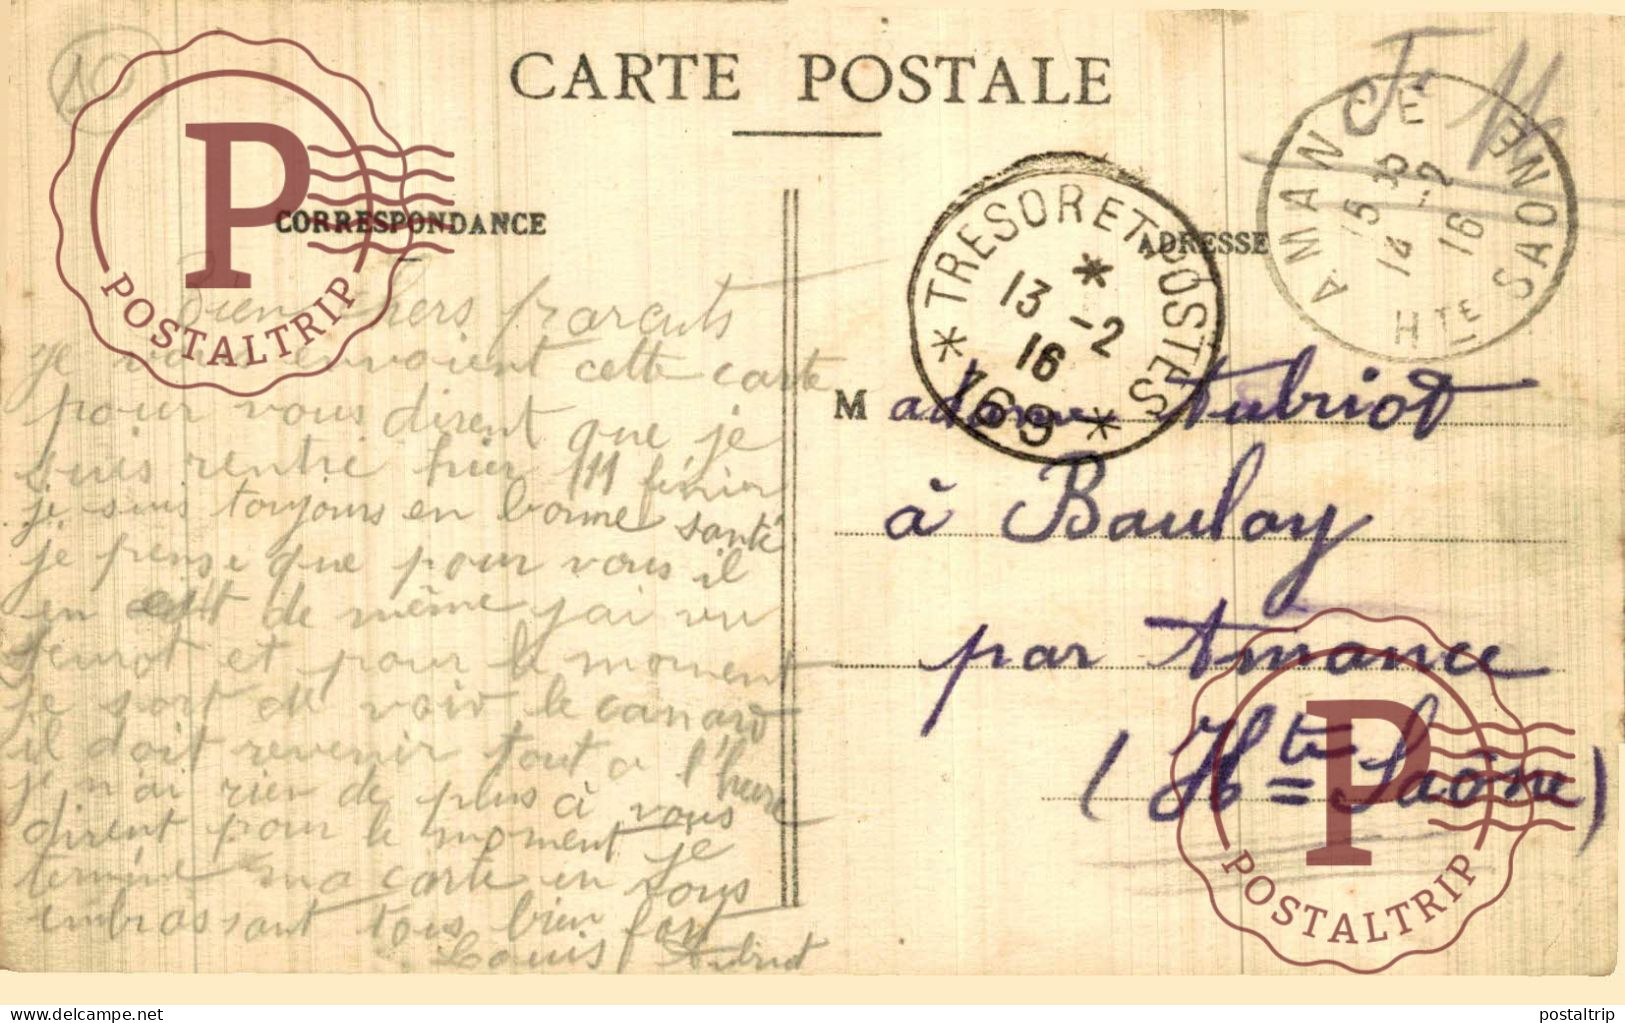 CARTE POSTALE
CORRESPONDANCE
ADRESSE
F M
AMANCE
15 35
14 -2
16
HTE SAONE
* TRESOR ET POSTES *
*
13 -2
16
169
Bien chers parents
je vous envoient cette carte
pour vous dirent que je
suis rentré hier 11 février
je suis toujours en bonne santé
je pense que pour vous il
en est de même j'ai vu
et pour le moment
je sort de voir le canard
il doit revenir tout a l'heure
je n'ai rien de plus à vous
dirent pour le moment je
termine ma carte en vous
embrassant tous bien fort
Louis Aubriot
M adame Aubriot
à Baulay
par Amance
(Hte Saône)
P
POSTALTRIP
P
POSTALTRIP
www.delcampe.net
postaltrip